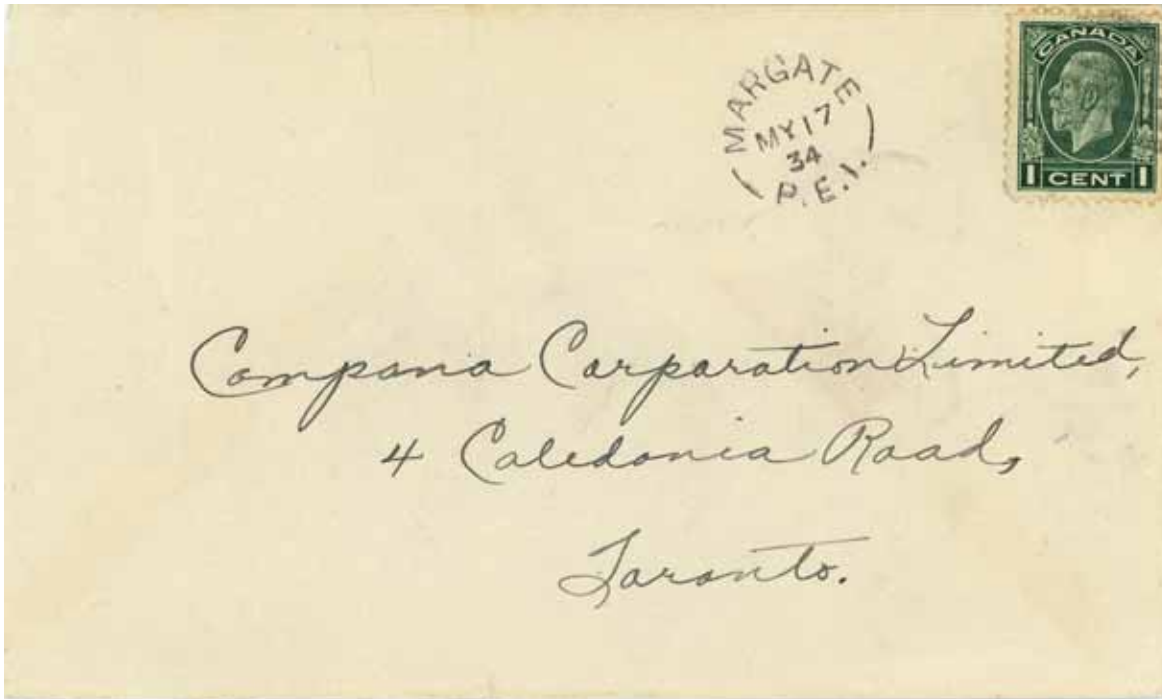 MARGATE
MY 17
34
P.E.I.
CANADA
1 CENT 1
Campana Corporation Limited,
4 Caledonia Road,
Toronto.